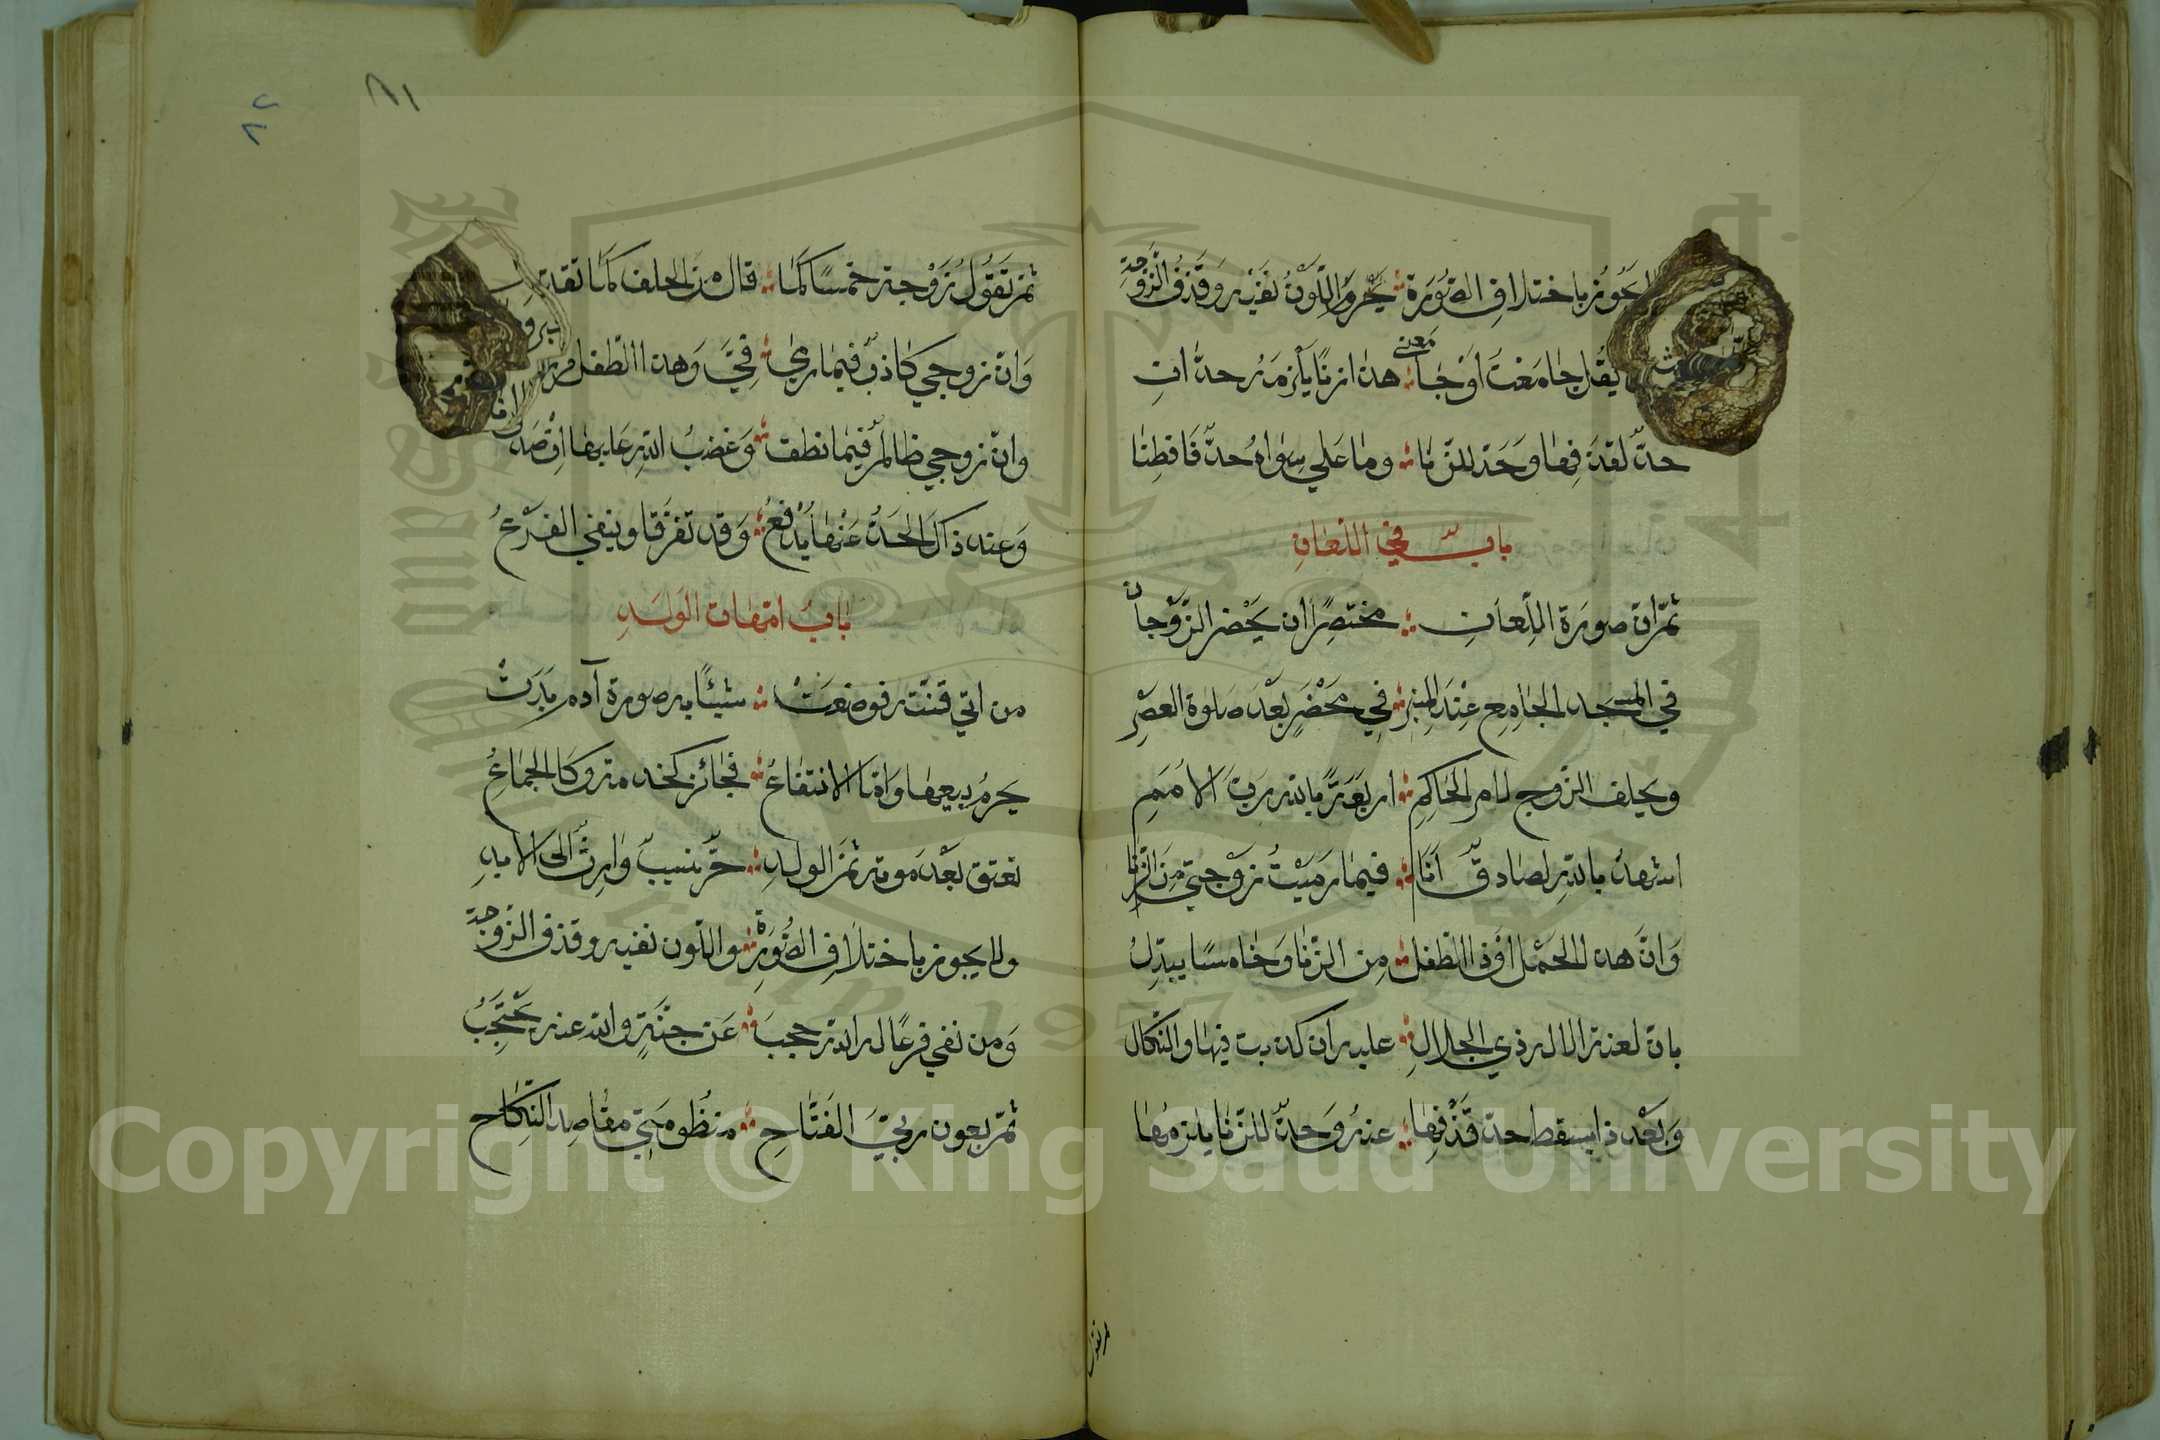 يجوز باختلاف الصورة يحرم اللون نفيه وقذف الزوجة
يقل جامعت أو جا معنى هذا زنا يلزمه حدان
حد لقذفها وحد للزنا وما على سواه حد فافطنا
باب في اللعان
ثم ان صورة اللعان مختصرا ان يحضر الزوجان
في المسجد الجامع عند المنبر في محضر بعد صلوة العصر
ويحلف الزوج لامر الحاكم اربعة بالله رب الامم
اشهد بالله لصادق انا فيما رميت زوجتي من الزنا
وان هذا الحمل او ذا الطفل من الزنا وخامسا يبدل
بان لعنة الاله ذي الجلال عليه ان كذبت فيها والنكال
وبعد ذا يسقط حد قذفها عنه وحد للزنا يلزمها
ثم تقول
ثم تقول زوجة خمسا كما قال من الحلف كما تقدم
وان زوجي كاذب فيما رمى في وهذا الطفل
وان زوجي ظالم فيما نطق وغضب الله عليها ان صدق
وعند ذاك الحد عنها يدفع وقد تفرقا وينفى الفرع
باب امهات الولد
من اتى قنته فوضعت شيئا به صورة آدم بدت
يحرم بيعها واما الانتفاع فجائز كخدمة وكالجماع
تعتق بعد موته ثم الولد حر نسيب وارث الى الابد
ولا يجوز باختلاف الصورة واللون نفيه وقذف الزوجة
ومن نفى فرعا له الله حجب عن جنة والله عنه يحتجب
ثم بعون ربي الفتاح منظومتي مقاصد النكاح
٨١
Copyright © King Saud University
1957